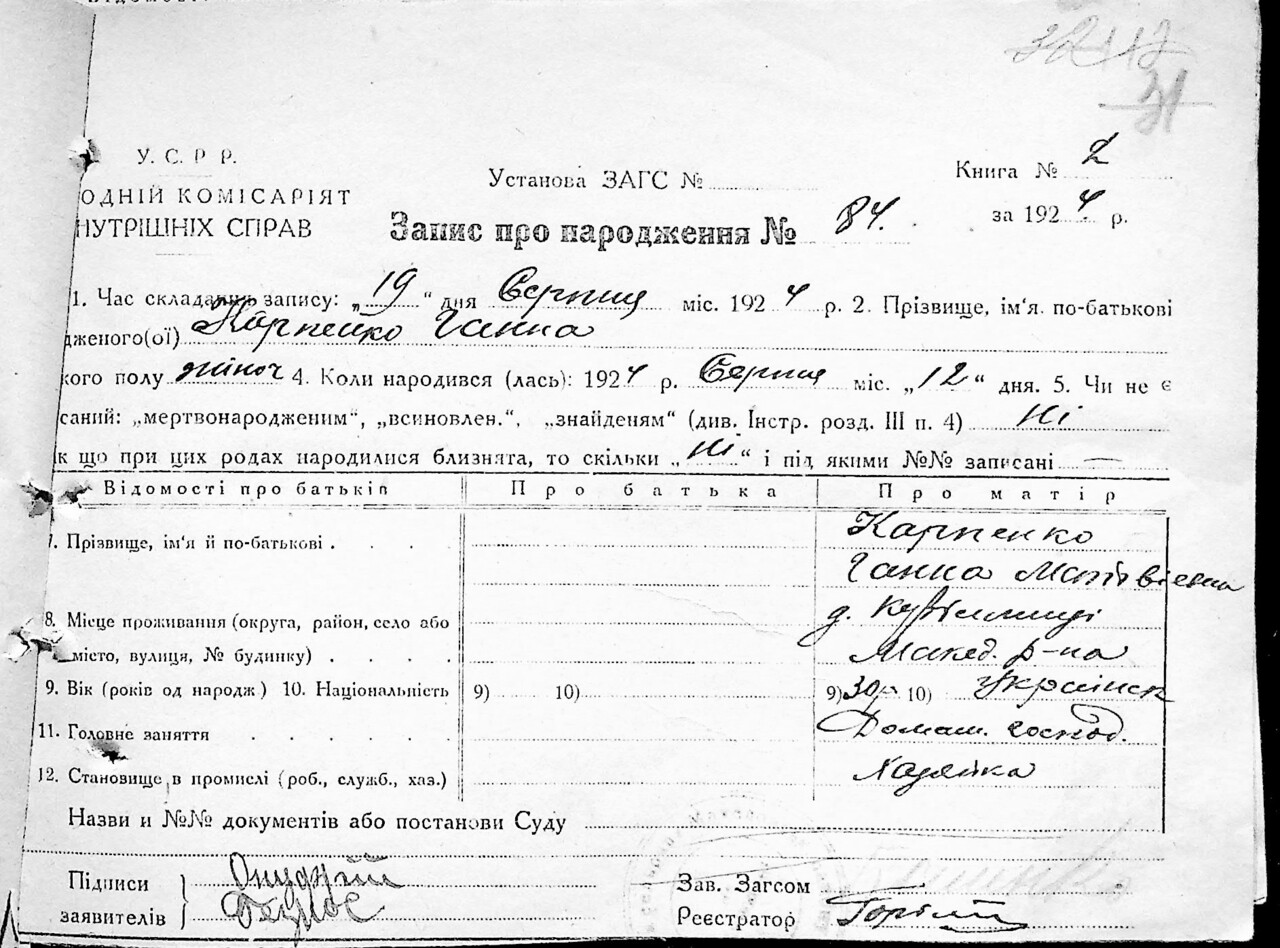 У. С. Р. Р.
ОДНІЙ КОМІСАРІЯТ
НУТРІШНІХ СПРАВ
Установа ЗАГС №
Книга № 2
за 1924 р.
Запис про народження № 84.
1. Час складання запису: „19“ дня Серпня міс. 1924 р. 2. Прізвище, ім'я. по-батькові
дженого(ої) Карпенко Ганна
кого полу жіноч 4. Коли народився (лась): 1924 р. Серпня міс. „12“ дня. 5. Чи не є
саний: „мертвонародженим“, „всиновлен.“, „знайденям“ (див. Інстр. розд. III п. 4) Ні
к що при цих родах народилися близнята, то скільки „Ні“ і під якими №№ записані —
Відомості про батьків Про батька Про матір
7. Прізвище, ім'я й по-батькові . . . . Карпенко
Ганна Матвієвна
8. Місце проживання (округа, район, село або д.
місто, вулиця, № будинку) . . . . Макед. р-на
9. Вік (років од народж.) 10. Національність 9) 10) 9) 30 р 10) Українск
11. Головне заняття . . . . . Домаш. господ.
12. Становище в промислі (роб., служб., хаз.) Хазяйка
Назви и №№ документів або постанови Суду
Підписи
заявителів
Зав. Загсом
Реєстратор